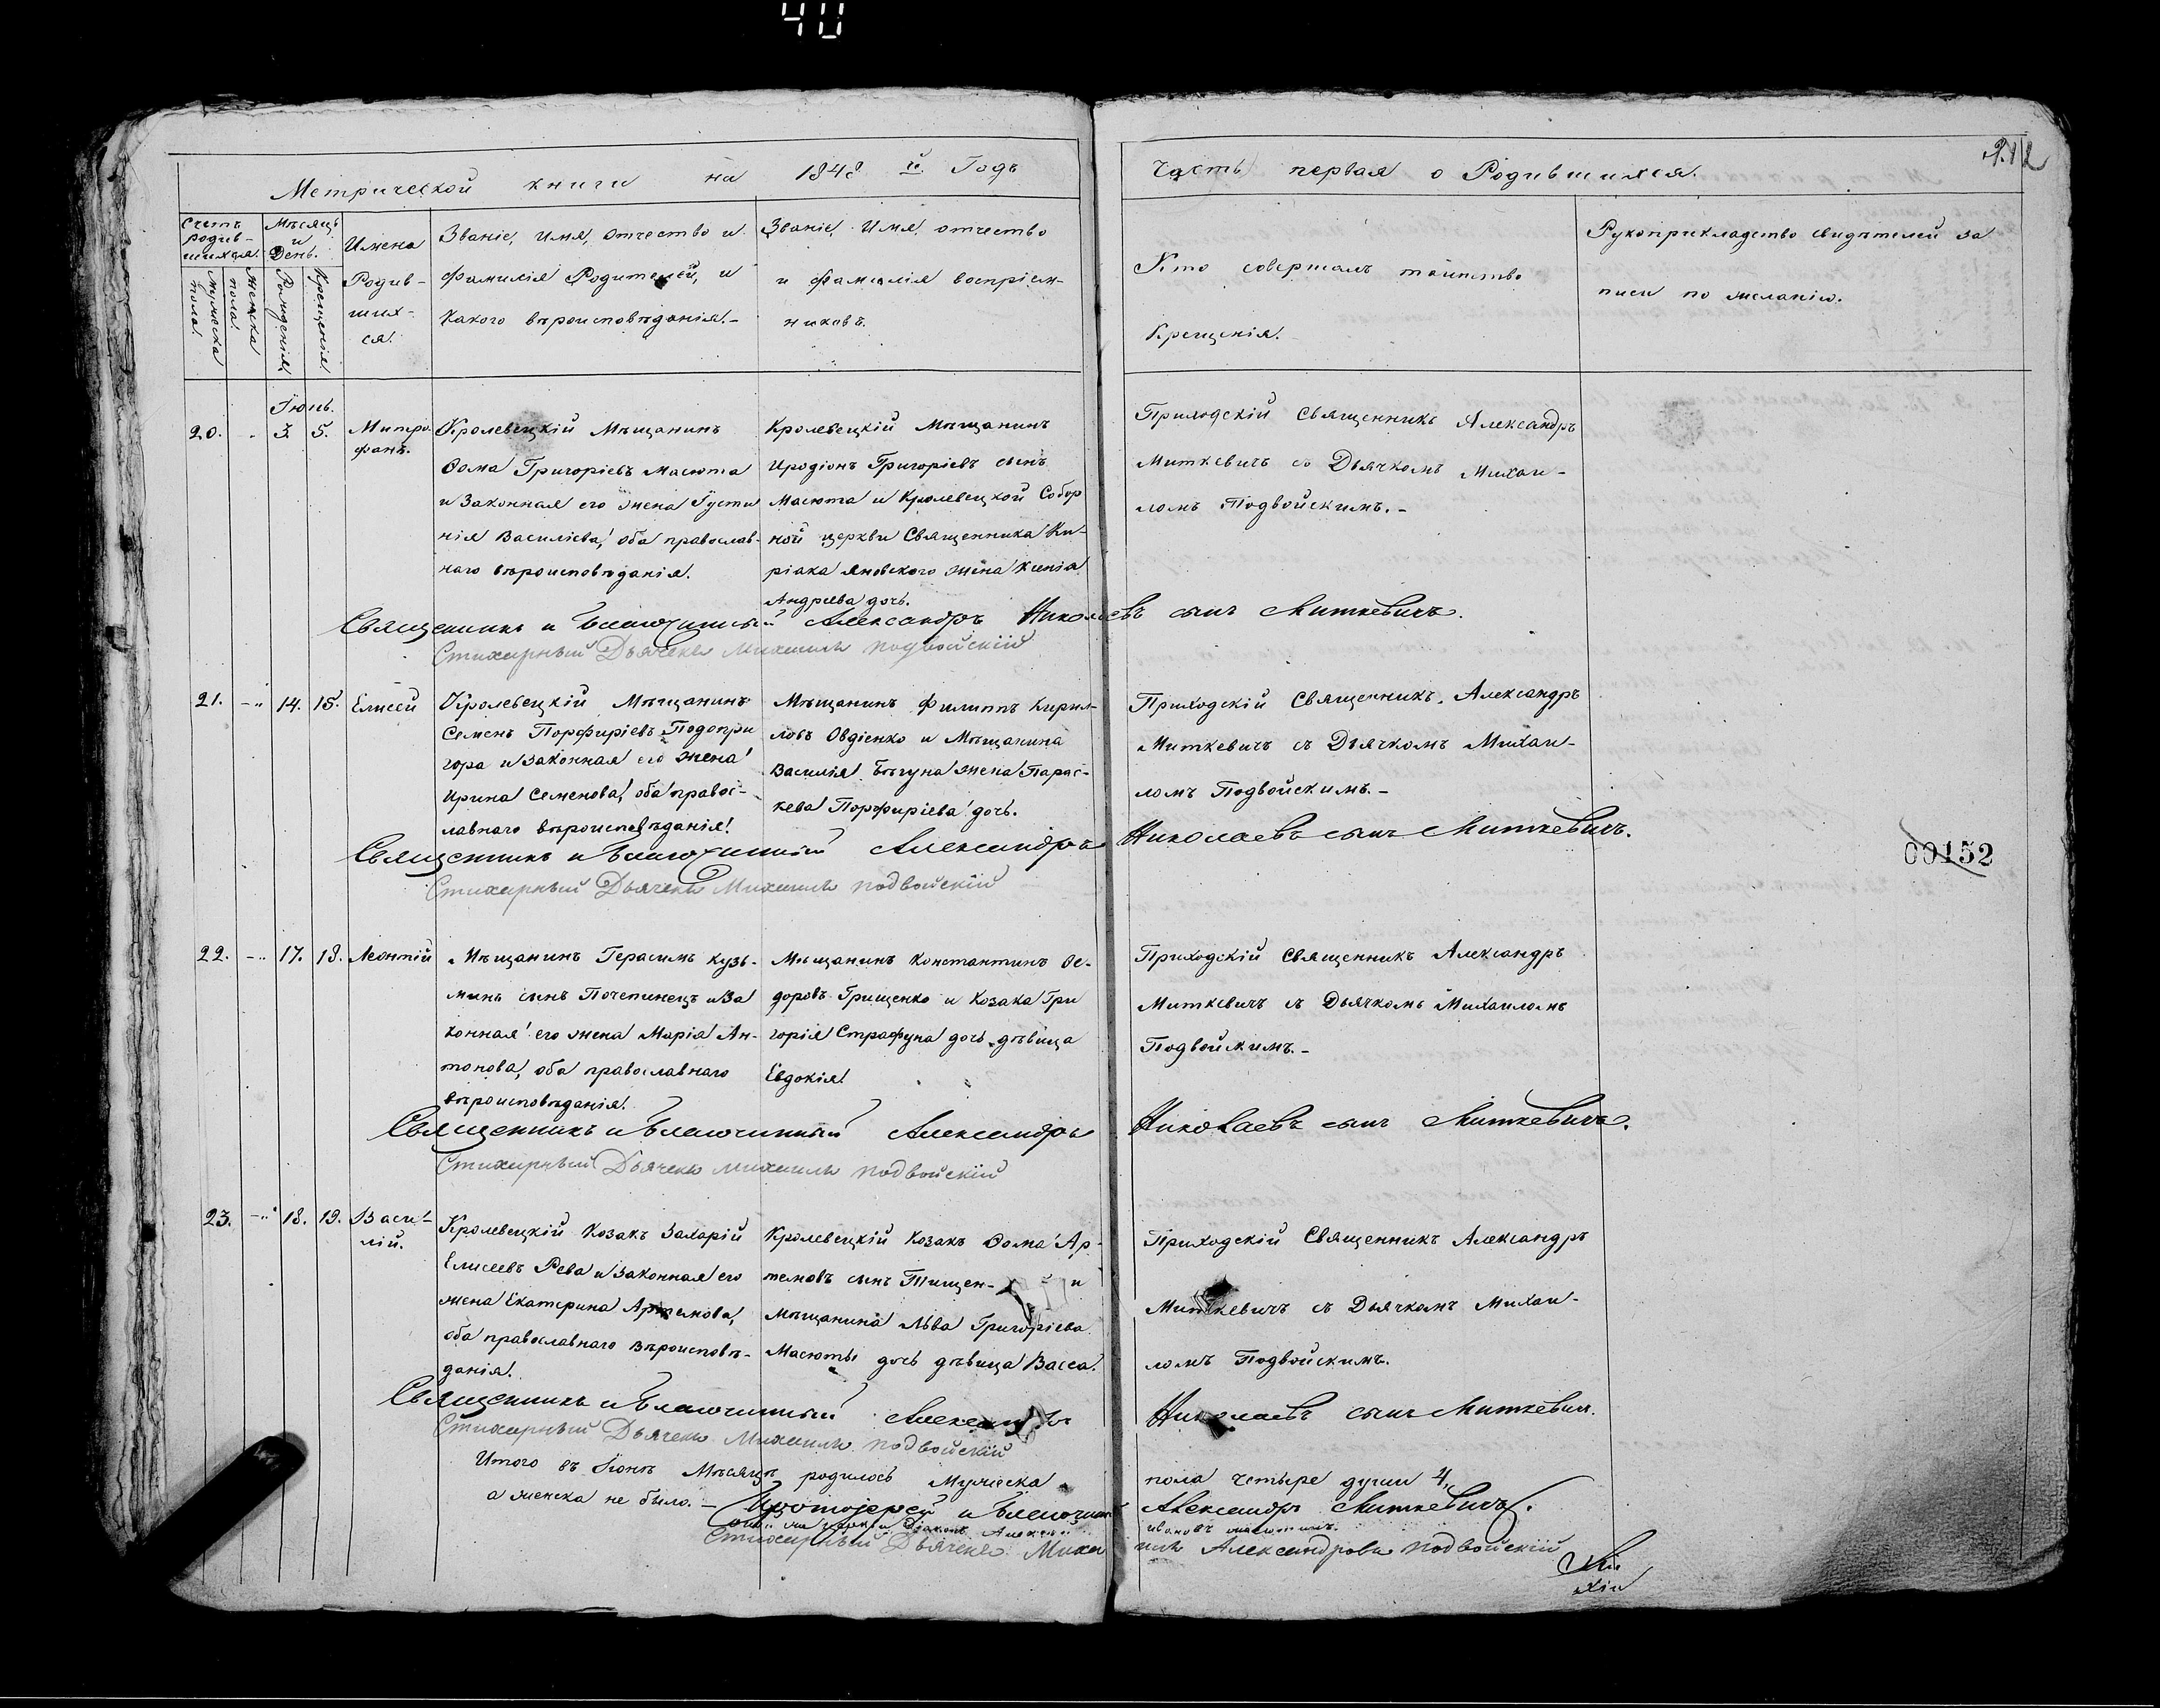 40
Метрической книги на 1848 й Годъ
Часть первая о Родившихся.
Счетъ родив-
шихся.
Мужеска пола.
Женска пола.
Мѣсяцъ
и
День.
Рожденія
Крещенія
Имена
Родив-
ших-
ся.
Званіе, Имя, отчество и
фамилія Родителей, и
какого вѣроисповѣданія.-
Званіе, Имя, отчество
и фамилія воспріем-
никовъ.
Кто совершалъ таинство
Крещенія.
Рукоприкладство свидѣтелей за
писи по желанію.
Іюнь.
20. 3. 5. Митро
фанъ.
Кролевецкій Мѣщанинъ
Ѳома Григоріевъ Масюта
и Законная его жена Густи
нія Василіева, оба православ-
наго вѣроисповѣданія.
Кролевецкій Мѣщанинъ
Иродіонъ Григоріевъ сынъ
Масюта и Кролевецкой Собор
ной церкви Священника Ки-
ріака Яновскаго жена Ксенія
Андреева дочь.
Приходскій Священникъ Александръ
Миткевичъ со Дьячкомъ Михаи-
ломъ Подвойскимъ.-
Священникъ и Благочинный Александръ Николаевъ сынъ Миткевичъ.
Стихарный Дьячекъ Михаилъ подвойскій
21. 14. 15. Елисей
Кролевецкій Мѣщанинъ
Семенъ Порфиріевъ Подопри
гора и законная его жена
Ирина Семенова, оба правос-
лавнаго вѣроисповѣданія.
Мѣщанинъ Филиппъ Кирил-
ловъ Овдіенко и Мѣщанина
Василія Бѣгуна жена Парас-
кева Порфиріева дочь.
Приходскій Священникъ Александръ
Миткевичъ съ Дьячкомъ Михаи-
ломъ Подвойскимъ.-
Священникъ и Благочинный Александръ Николаевъ сынъ Миткевичъ.
Стихарный Дьячекъ Михаилъ подвойскій
00152
22. 17. 18. Леонтій
Мѣщанинъ Герасимъ Кузь-
минъ сынъ Почепинецъ и За
конная его жена Марія Ан-
тонова, оба православнаго
вѣроисповѣданія.
Мѣщанинъ Константинъ Ѳе-
доровъ Грищенко и Козака Гри
горія Страфуна дочь дѣвица
Евдокія.
Приходскій Священникъ Александръ
Миткевичъ съ Дьячкомъ Михаиломъ
Подвойскимъ.-
Священникъ и Благочинный Александръ Николаевъ сынъ Миткевичъ.
Стихарный Дьячекъ Михаилъ подвойскій
23. 18. 19. Васи-
лій.
Кролевецкій Козакъ Захарій
Елисеевъ Рева и Законная его
жена Екатерина Артемова,
оба православнаго вѣроисповѣ-
данія.
Кролевецкій Козакъ Ѳома Ар-
темовъ сынъ Тищен- и
Мѣщанина Льва Григоріева
Масюты дочь дѣвица Васса.
Приходскій Священникъ Александръ
Миткевичъ съ Дьячкомъ Михаи-
ломъ Подвойскимъ.
Священникъ и Благочинный Александръ Николаевъ сынъ Миткевичъ.
Стихарный Дьячекъ Михаилъ подвойскій
Итого въ Іюнѣ Мѣсяцѣ родилось Мужеска пола четыре души 4,
а женска не было.- Протоіерей и Благочин Александръ Миткевичъ.
Діаконъ Алексѣй Ивановъ
Стихарный Дьячекъ Михаилъ Александровъ подвойскій